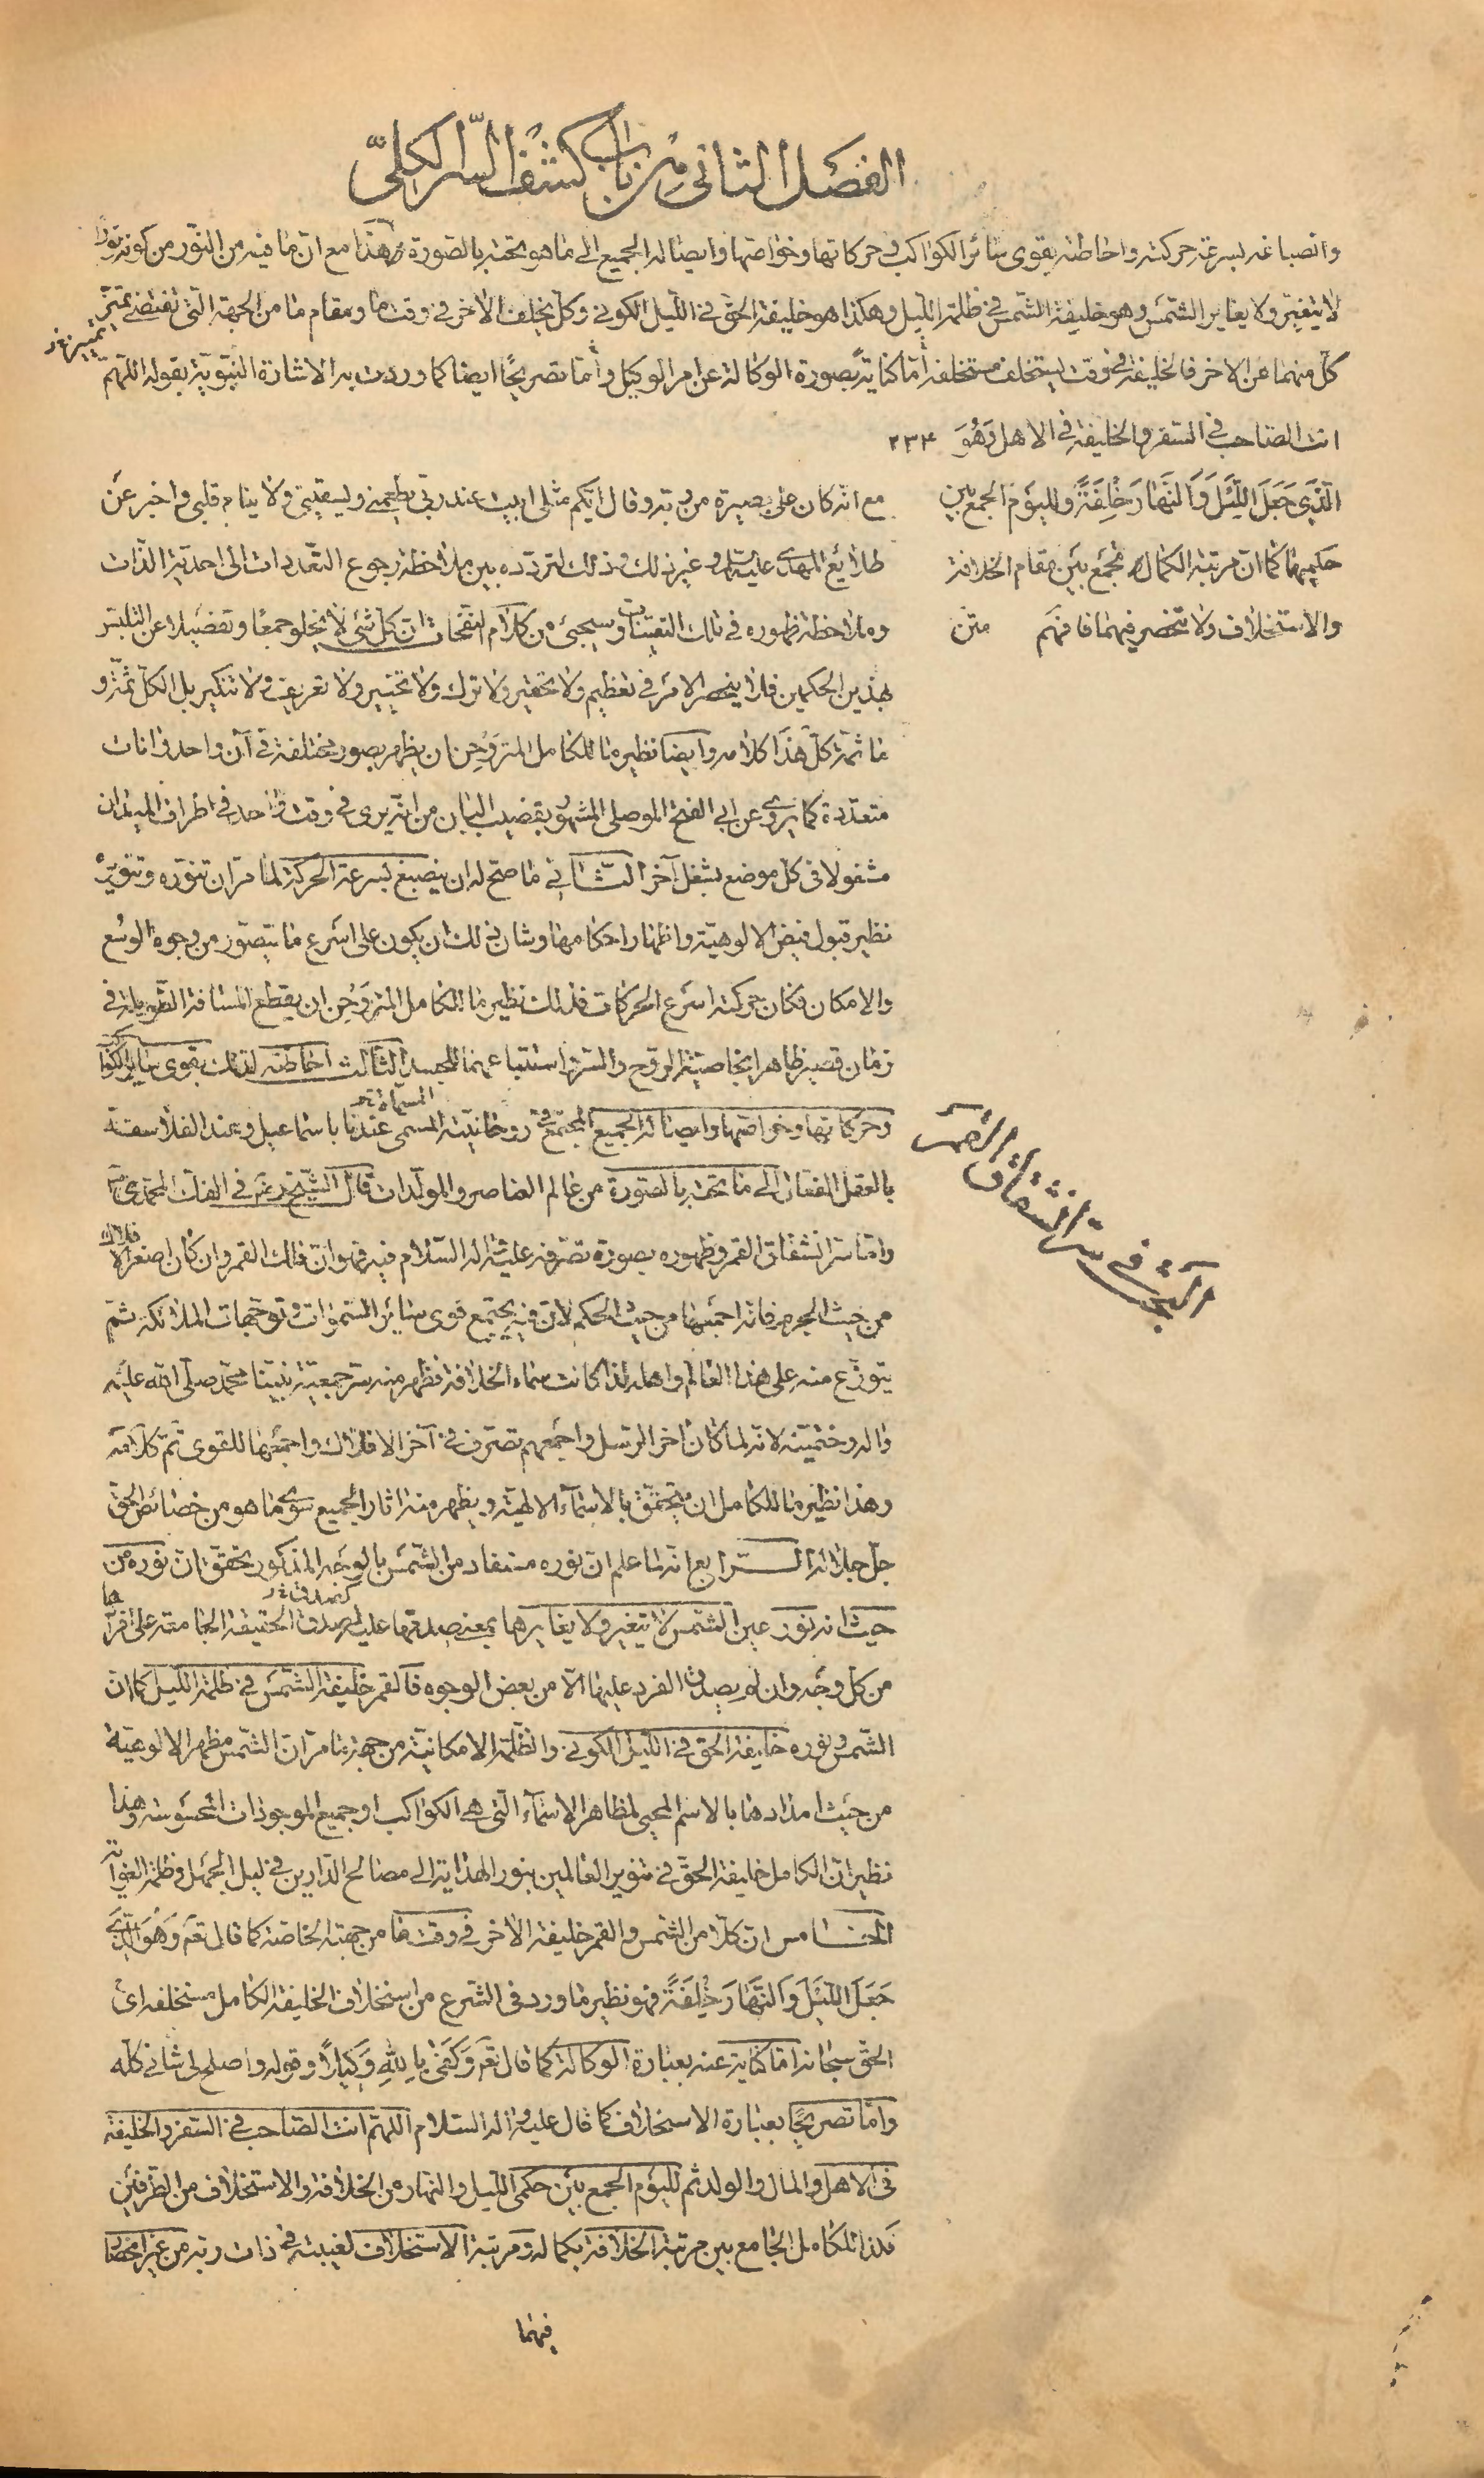 الفصل الثانى من باب كشف السّر الكلّى
وانصباغه بسرعة حركته واحاطته بقوى سائر الكواكب وحركاتها وخواصّها وايصاله الجميع الى ما هو تحته بالصّورة هذا مع انّ ما فيه من النّور من كونه نورا
لا يتغيّر ولا يغاير الشّمس وهو خليفة الشّمس فى ظلمة اللّيل وهكذا هو خليفة الحقّ فى اللّيل الكونى وكلّ يخلف الآخر فى وقت ما ومقام ما من الجهة الّتى تقتضى تميّز
بتميز خ ر
كلّ منهما عن الآخر فالخليفة فى وقت يستخلف مستخلفه امّا كناية بصورة الوكالة عن امر الوكيل وامّا تصريحًا ايضا كما وردت به الاشارة النّبويّة بقوله اللّهم
انت الصّاحب فى السّفر والخليفة فى الاهل وَهُوَ ٢٣٤
الَّذى جَعَلَ اللَّيْلَ وَالنَّهارَ خِلْفَةً ولليوم الجمع بين
حكميهما كما انّ مرتبة الكمال تجمع بين مقام الخلافة
والاستخلاف ولا تنحصر فيهما فافهم متن
مع انّه كان على بصيرة من ربّه وقال ايّكم مثلى ابيت عند ربّى يطعمنى ويسقينى ولا ينام قلبى واخبر عن
طلايع المهدى عليه السلم وغير ذلك وذلك لتردّده بين ملاحظة رجوع التعدّدات الى احديّة الذّات
وملاحظة ظهوره فى تلك التعيّنات وسيجئ من كلام النّفحات انّ كلّ شئ لا يخلو جمعًا وتفصيلا عن التلبّس
بهذين الحكمين فلا ينحصر الامر فى تعظيم ولا تحقير ولا ترك ولا تخيير ولا تعريف ولا تنكير بل الكلّ ثمّة و
ما ثمّة كلّ هذا كلامه وايضا نظيره ما للكامل المتروحن ان يظهر بصور مختلفة فى آن واحد وانات
متعدّدة كما يروى عن ابى الفتح الموصلى المشهور بقضيب البان من انّه يرى فى وقت واحد فى اطراف الميدان
مشغولا فى كل موضع بشغل آخر الثّانى ما صحّ له ان ينصبغ بسرعة الحركة لما مرّ ان تنوّره وتنويره
نظير قبول فيض الالوهيّة واظهار احكامها وشان ذلك ان يكون على اسرع ما يتصوّر من وجوه الوسع
والامكان فكان حركته اسرع الحركات فذلك نظير ما للكامل المتروحن ان يقطع المسافة الطّويلة فى
زمان قصير ظاهرا بخاصيّة الروح والسّرّ واستتباعهما للجسد الثّالث احاطته لذلك بقوى سائر الكواكب
وحركاتها وخواصّها وايصاله الجميع المجتمع فى روحانيّته المسمّى عندنا باسماعيل وعند الفلاسفة
المسمّاة خ ر
بالعقل الفعّال الى ما تحته بالصّورة من عالم العناصر والمولّدات قال الشّيخ رض فى الفلك المحمّدى
وامّا سرّ انشقاق القمر وظهوره بصورة تصرّفه عليه وآله السّلام فيه فهو انّ فلك القمر وان كان اصغر الافلاك
من حيث الجرم فانّه اجمعها من حيث الحكم لانّ فيه يجتمع قوى سائر السّموات وتوجّهات الملائكة ثمّ
يتوزّع منه على هذا العالم واهله لذا كانت سماء الخلافة فظهر منه سرّ جمعيّة نبيّنا محمّد صلّى الله عليه
وآله وختميّته لانّه لمّا كان آخر الرّسل واجمعهم تصرّف فى آخر الافلاك واجمعها للقوى تمّ كلامه
وهذا نظير ما للكامل ان يتحقّق بالاسماء الالهيّة ويظهر منه اثار الجميع سوى ما هو من خصائص الحقّ
جلّ جلاله الـرابع انّه لمّا علم انّ نوره مستفاد من الشّمس بالوجه المذكور تحقّق انّ نوره من
حيث انه نور عين الشّمس لا يتغير ولا يغايرها بمعنى صدقها عليه صدق الحقيقة الجامعة على افرادها
كصدق خ ر
من كل وجه وان لم يصدق الفرد عليها الّا من بعض الوجوه فالقمر خليفة الشّمس فى ظلمة اللّيل كما انّ
الشّمس ونوره خليفة الحق فى اللّيل الكونى والظّلمة الامكانيّة من جهة ما مرّ انّ الشّمس مظهر الالوهيّة
من حيث امدادها بالاسم المحيى لمظاهر الاسماء الّتى هى الكواكب او جميع الموجودات المحسوسة وهذا
نظير انّ الكامل خليفة الحقّ فى تنوير العالمين بنور الهداية الى مصالح الدّارين فى ليل الجهل وظلمة الغواية
الخـامس انّ كلّا من الشّمس والقمر خليفة الآخر فى وقت ما من جهته الخاصّة كما قال تعم وَهُوَ الَّذى
جَعَلَ اللَّيْلَ وَالنَّهارَ خِلْفَةً فهو نظير ما ورد فى الشّرع من استخلاف الخليفة الكامل مستخلفه اى
الحقّ سبحانه امّا كناية عنه بعبارة الوكالة كما قال تعم وَكَفى بِاللهِ وَكيلًا وقوله واصلح لى شانى كلّه
وامّا تصريحًا بعبارة الاستخلاف كما قال عليه وآله السّلام اللّهمّ انت الصّاحب فى السّفر والخليفة
فى الاهل والمال والولد ثم لليوم الجمع بين حكمى اللّيل والنهار من الخلافة والاستخلاف من الطّرفين
فكذا للكامل الجامع بين مرتبة الخلافة بكماله ومرتبة الاستخلاف لغيبته فى ذات ربّه من غير انحصار
البحث فى سرّ انشقاق القمر
فيهما